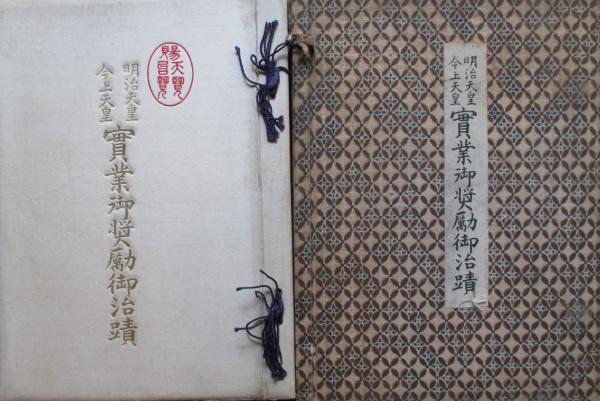 賜天覽
賜台覽
明治天皇
今上天皇
實業御奨勵御治蹟
明治天皇
今上天皇
實業御奨勵御治蹟